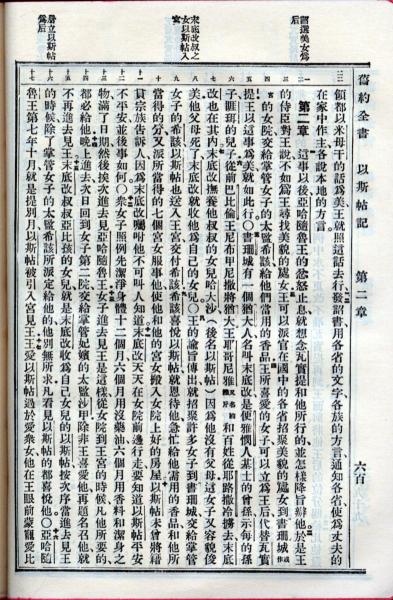 舊約全書　以斯帖記　第二章　六百
詔選美女為
后
末底改叔之
女以斯帖入
宮
立以斯帖
為后
領都以米母干的話為美王就照這話去行發詔書用各省的文字各族的方言通知各省使為丈夫的
在家中作主各說本地的方言。
第二章　這事以後亞哈隨魯王的忿怒止息就想念瓦實提和他所行的並怎樣降旨辦他於是王
的侍臣對王說不如為王尋找美貌的處女王可以派官在國中的各省招聚美貌的處女到書珊城或作
宮的女院交給掌管女子的太監希該給他們當用的香品王所喜愛的女子可以立為王后代替瓦實
提王以這事為美就如此行○書珊城有一個猶大人名叫末底改是便雅憫人基士的曾孫示每的孫
子睚珥的兒子從前巴比倫王尼布甲尼撒將猶大王耶哥尼雅又名約雅斤和百姓從耶路撒冷擄去末底
改也在其內末底改撫養他叔叔的女兒哈大沙（後名以斯帖）因為他沒有父母這女子又容貌俊
美他父母死了末底改就收他為自己的女兒○王的諭旨傳出就招聚許多女子到書珊城交給掌管
女子的希該以斯帖也送入王宮交付希該希該喜悅以斯帖就恩待他急忙給他需用的香品和他所
當得的分又派所當得的七個宮女服事他使他和他的宮女搬入女院上好的房屋以斯帖未曾將籍
貫宗族告訴人因為末底改囑咐他不可叫人知道末底改天天在女院前邊行走要知道以斯帖平安
不平安並後事如何○眾女子照例先潔淨身體十二個月六個月用沒藥油六個月用香料和潔身之
物滿了日期然後挨次進去見亞哈隨魯王女子進去見王是這樣從女院到王宮的時候凡他所要的
都必給他晚上進去次日回到女子第二院交給掌管妃嬪的太監沙甲除非王喜愛他再題名召他就
不再進去見王末底改叔叔亞比孩的女兒就是末底改收為自己女兒的以斯帖按次序當進去見王
的時候除了掌管女子的太監希該所派定給他的他別無所求凡看見以斯帖的都喜悅他○亞哈隨
魯王第七年十月就是提別月以斯帖被引入宮見王王愛以斯帖過於愛眾女他在王眼前蒙寵愛比